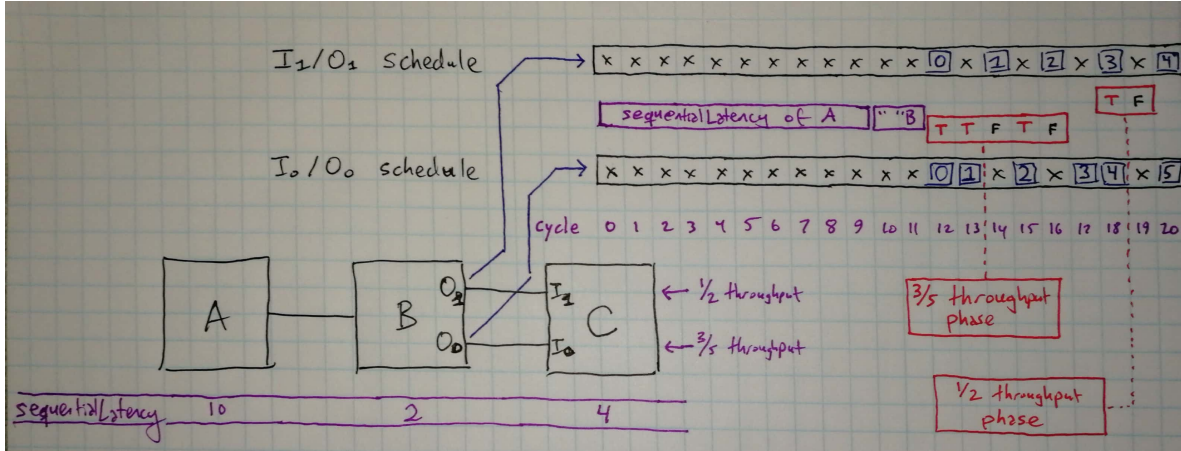 I1/O1 schedule x x x x x x x x x x x x 0 x 1 x 2 x 3 x 4
T F
sequentialLatency of A " " B
T T F T F
I0/O0 schedule x x x x x x x x x x x x 0 1 x 2 x 3 4 x 5
cycle 0 1 2 3 4 5 6 7 8 9 10 11 12 13 14 15 16 17 18 19 20
A
B
O1
O0
I1
I0
C
← 1/2 throughput
← 3/5 throughput
3/5 throughput
phase
1/2 throughput
phase
sequentialLatency 10 2 4